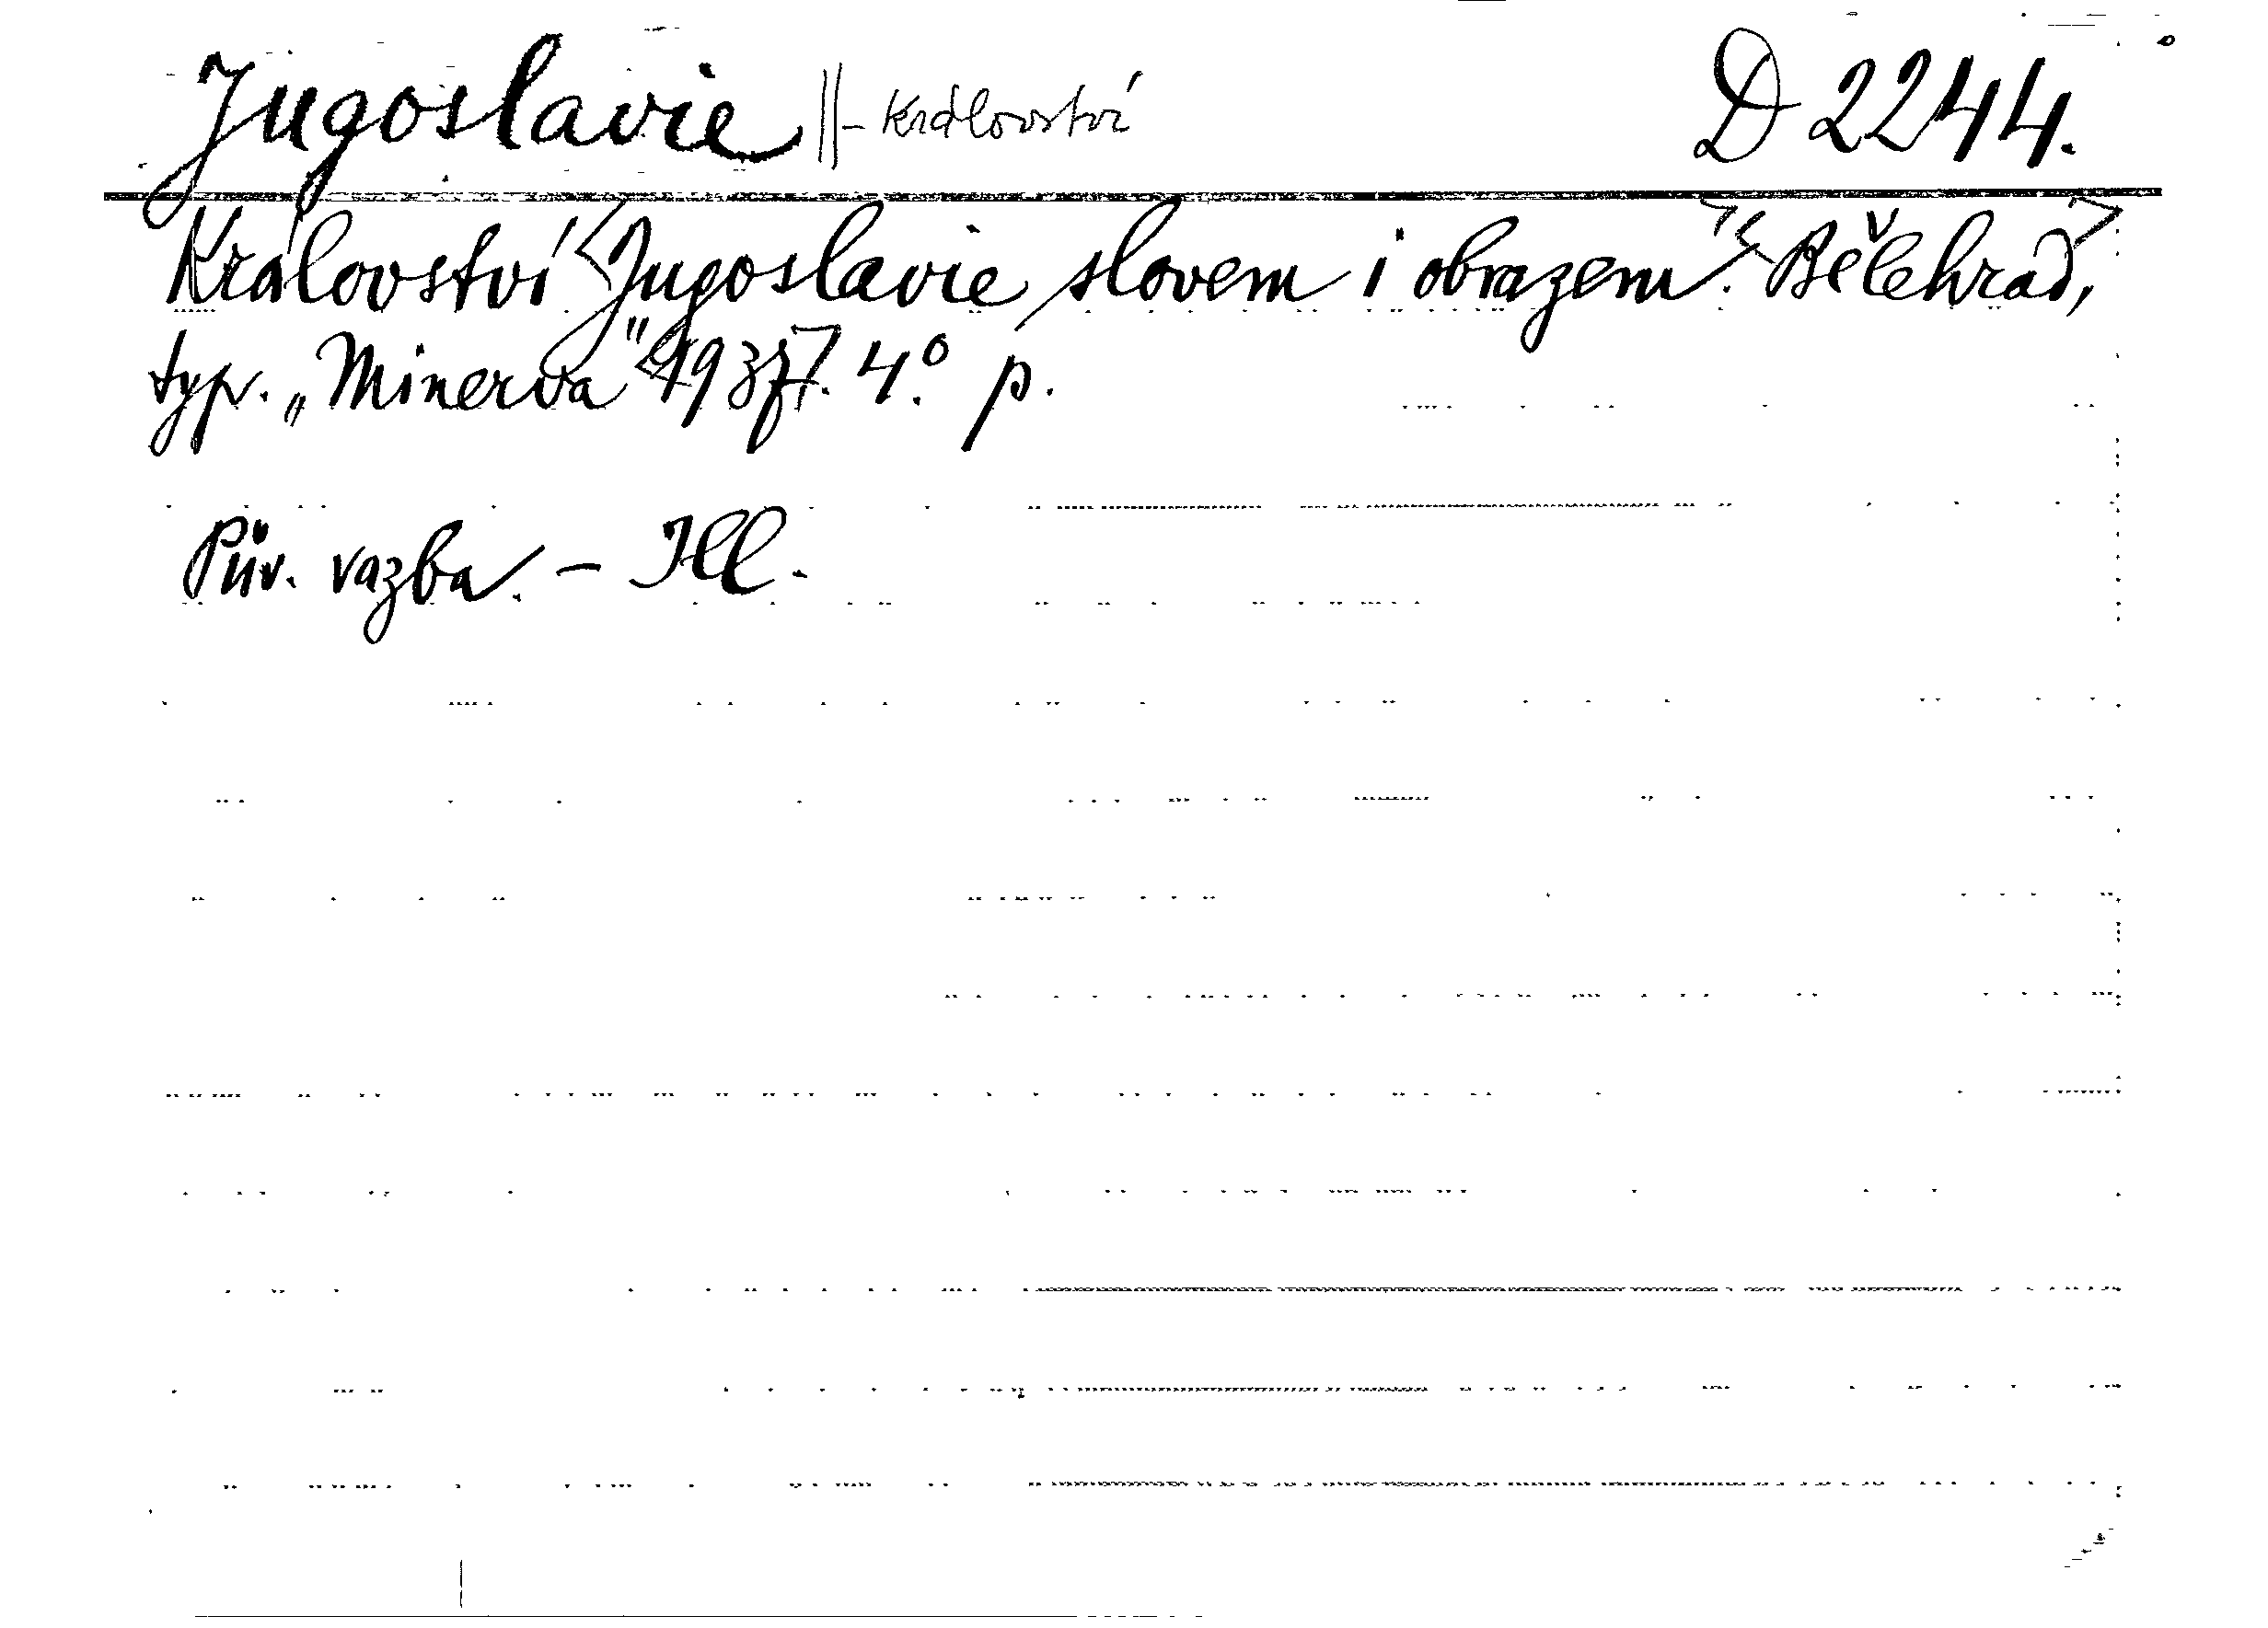 Jugoslavie ||- Království D 2244.
Království <Jugoslavie slovem i obrazem>. <Bělehrad>,
typ. „Minerva" <193?>. 4.° p.
Pův. vazba. – Ill.